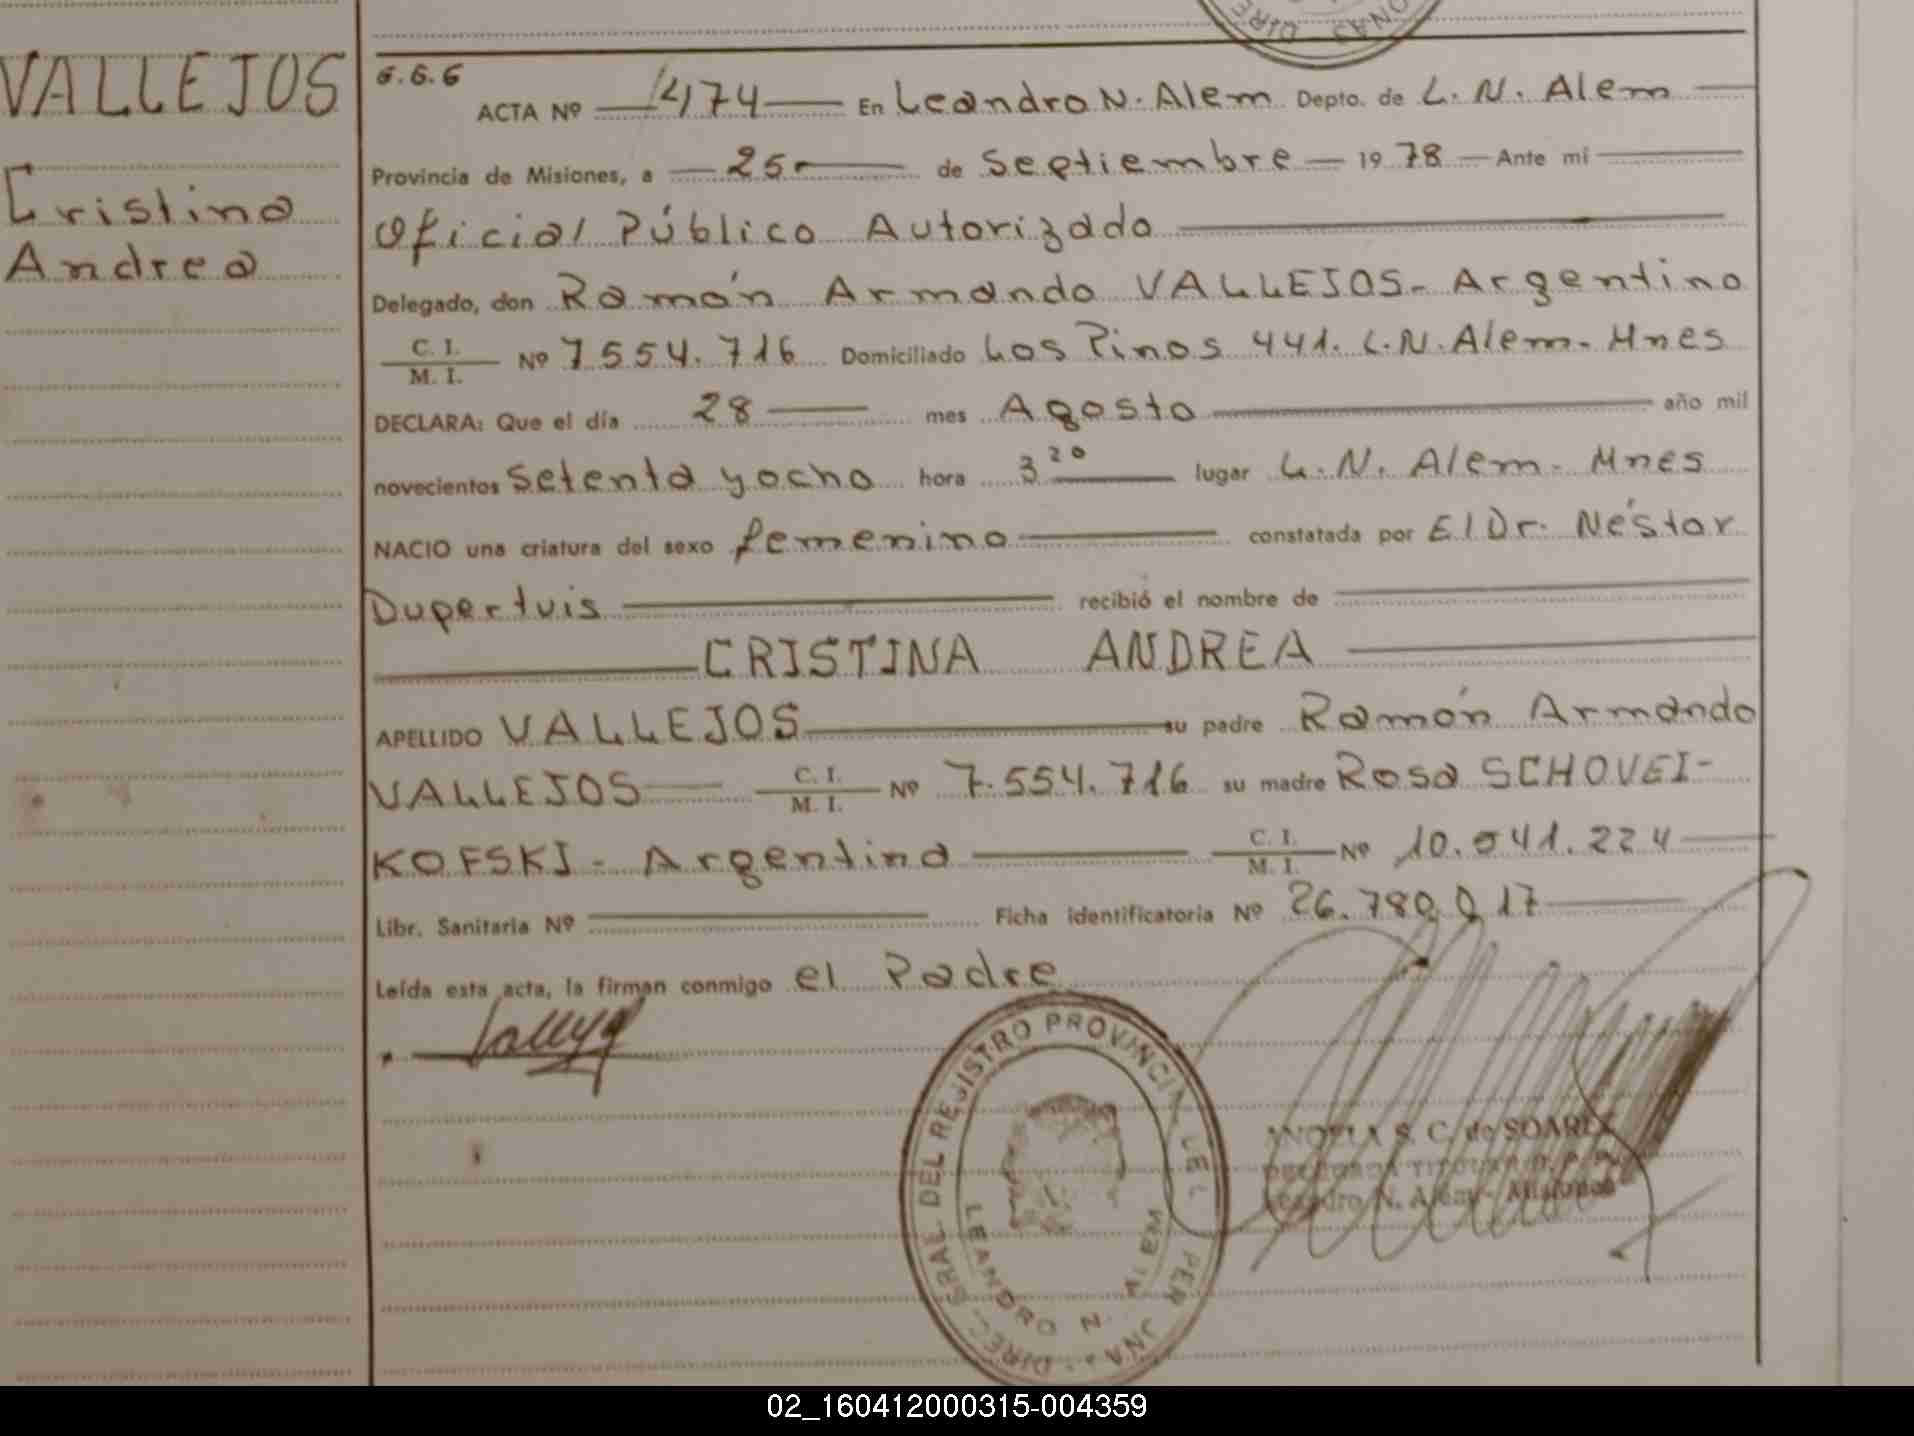 VALLEJOS
Cristina
Andrea
G.G.G
ACTA Nº 474 En Leandro N. Alem Depto. de L. N. Alem
Provincia de Misiones, a 25 de Septiembre 1978 Ante mi
Oficial Público Autorizado
Delegado, don Ramón Armando VALLEJOS - Argentino
C. I.
M. I. Nº 7.554.716 Domiciliado Los Pinos 441. L.N.Alem- Mnes
DECLARA: Que el día 28 mes Agosto año mil
novecientos setenta y ocho hora 3 20 lugar L. N. Alem- Mnes
NACIO una criatura del sexo femenino constatada por El Dr. Néstor
Dupertuis recibió el nombre de
CRISTINA ANDREA
APELLIDO VALLEJOS su padre Ramón Armando
VALLEJOS C. I. M. I. Nº 7.554.716 su madre Rosa SCHOVEI-
KOFSKI - Argentina C. I. M. I. Nº 10.541.224
Libr. Sanitaria Nº Ficha identificatoria Nº 26.780.017
Leída esta acta, la firman conmigo el Padre
DIREC. GRAL DEL REGISTRO PROVINCIAL DEL PER
LEANDRO N. ALEM
S. C. de SOAREZ
Leandro N. Alem - Misiones
02_160412000315-004359